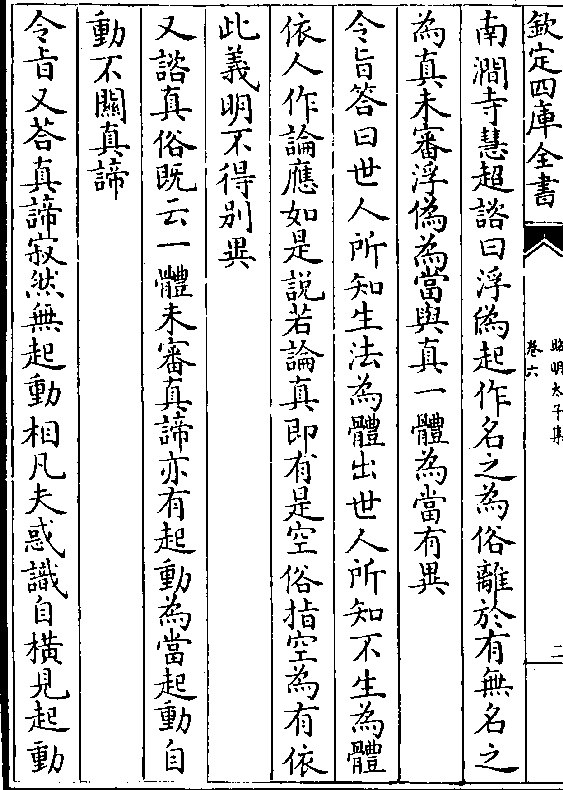 欽定四庫全書
昭明太子集
卷六
二
南澗寺慧超諮曰浮偽起作名之為俗離於有無名之
為真未審浮偽為當與真一體為當有異
令旨答曰世人所知生法為體出世人所知不生為體
依人作論應如是說若論真即有是空俗指空為有依
此義明不得别異
又諮真俗既云一體未審真諦亦有起動為當起動自
動不關真諦
令旨又荅真諦寂然無起動相凡夫惑識自横見起動